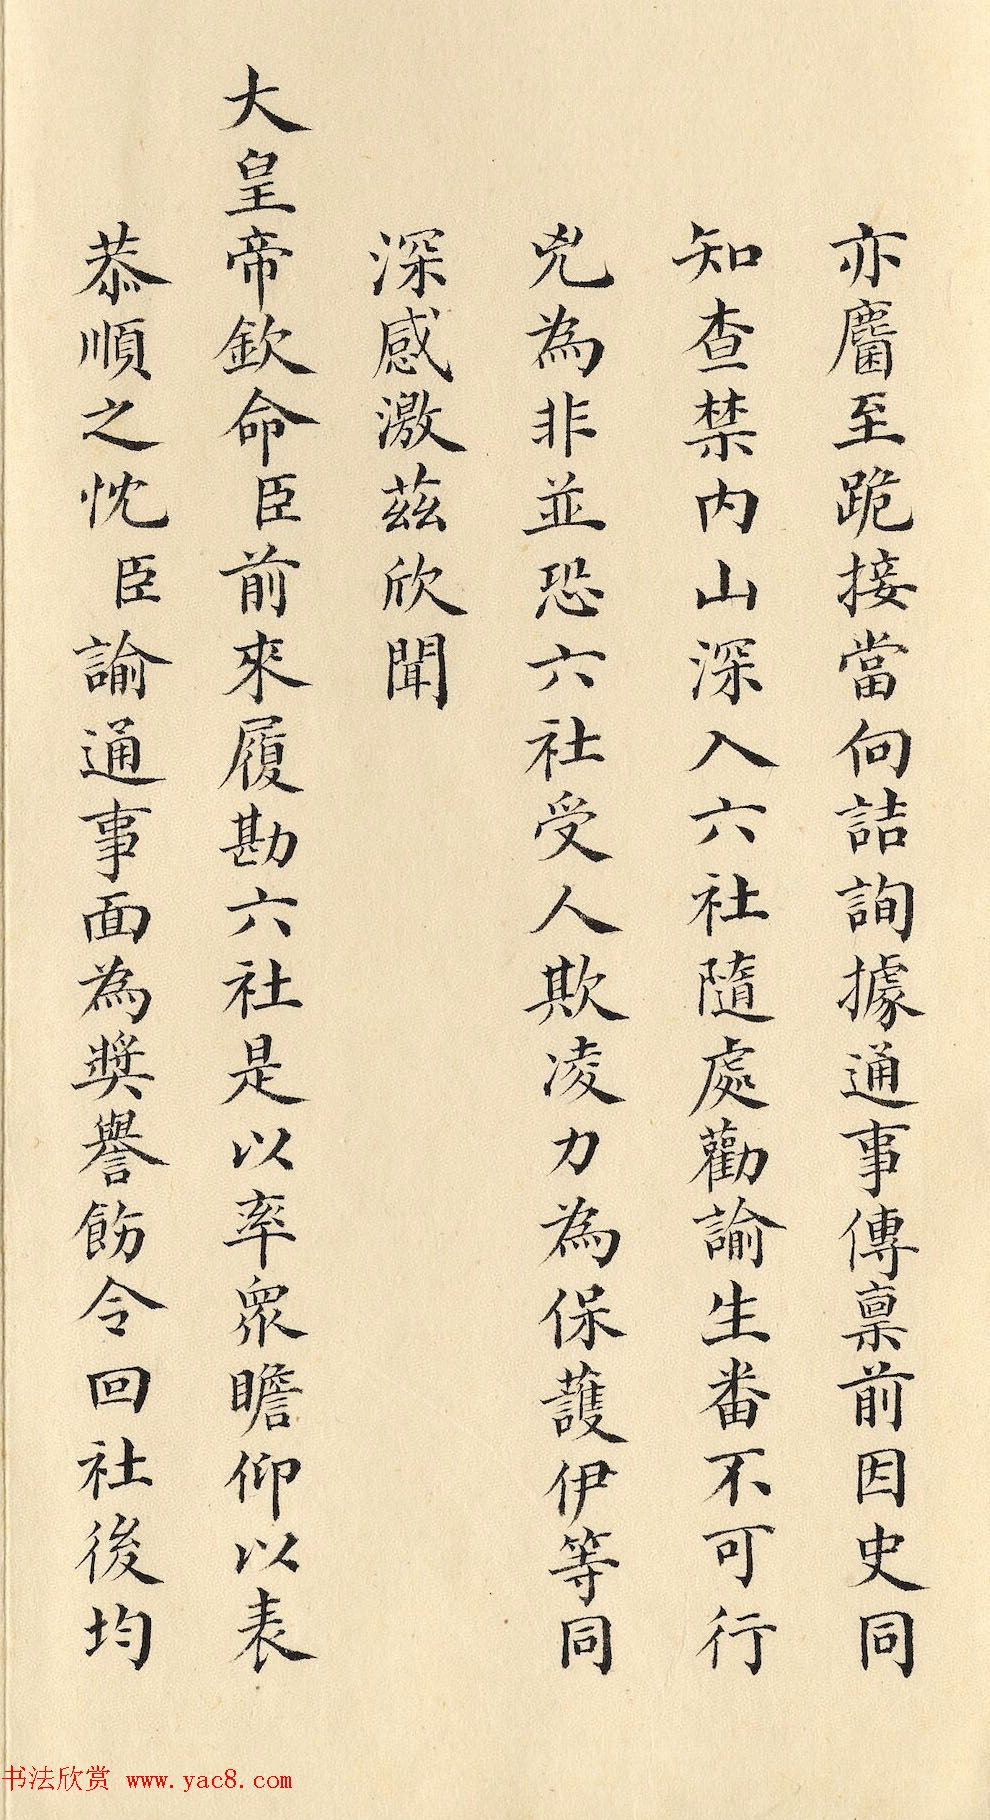 亦麕至跪接當向詰詢據通事傳稟前因史同
知查禁内山深入六社隨處勸諭生番不可行
兇為非並恐六社受人欺凌力為保護伊等同
深感激茲欣聞
大皇帝欽命臣前來履勘六社是以率眾瞻仰以表
恭順之忱臣諭通事面為獎譽飭令回社後均
书法欣赏 www.yac8.com